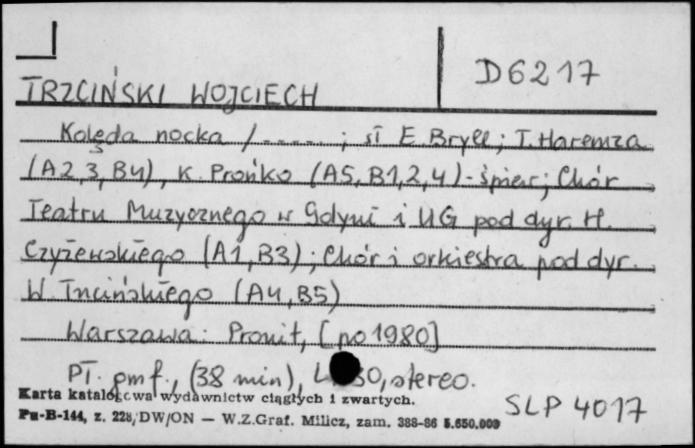 D6217
TRZCIŃSKI WOJCIECH
Kolęda nocka / ..... ; sł E. Bryll; T. Haremza
(A2,3,B4), K. Prońko (A5,B1,2,4)-śpiew; Chór
Teatru Muzycznego w Gdyni i UG pod dyr. H.
Czyżewskiego (A1,B3); Chór i orkiestra pod dyr.
W. Trcińskiego (A4,B5)
Warszawa: Pronit, [po 1980]
Pł. gmf., (38 min), stereo.
Karta katalogowa wydawnictw ciągłych i zwartych.
Pu-B-144, z. 228, DW/ON — W.Z.Graf. Milicz, zam. 388-86 5.650.000
SLP 4017